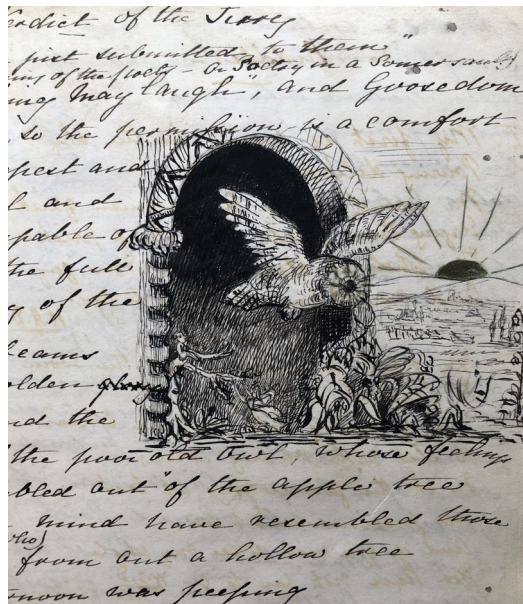 erdict of the Jury
just submitted, to them"
ns of the poets – Or Sodom in a Somersault)
ing May laugh", and Goosedom
so the permission is a comfort
pest and
l and
pable of
the full
y of the
leams
olden
nd the
the poor old Owl, whose feelings
bled out" of the apple tree
mind have resembled those
who)
from out a hollow tree
rnoon was peeping